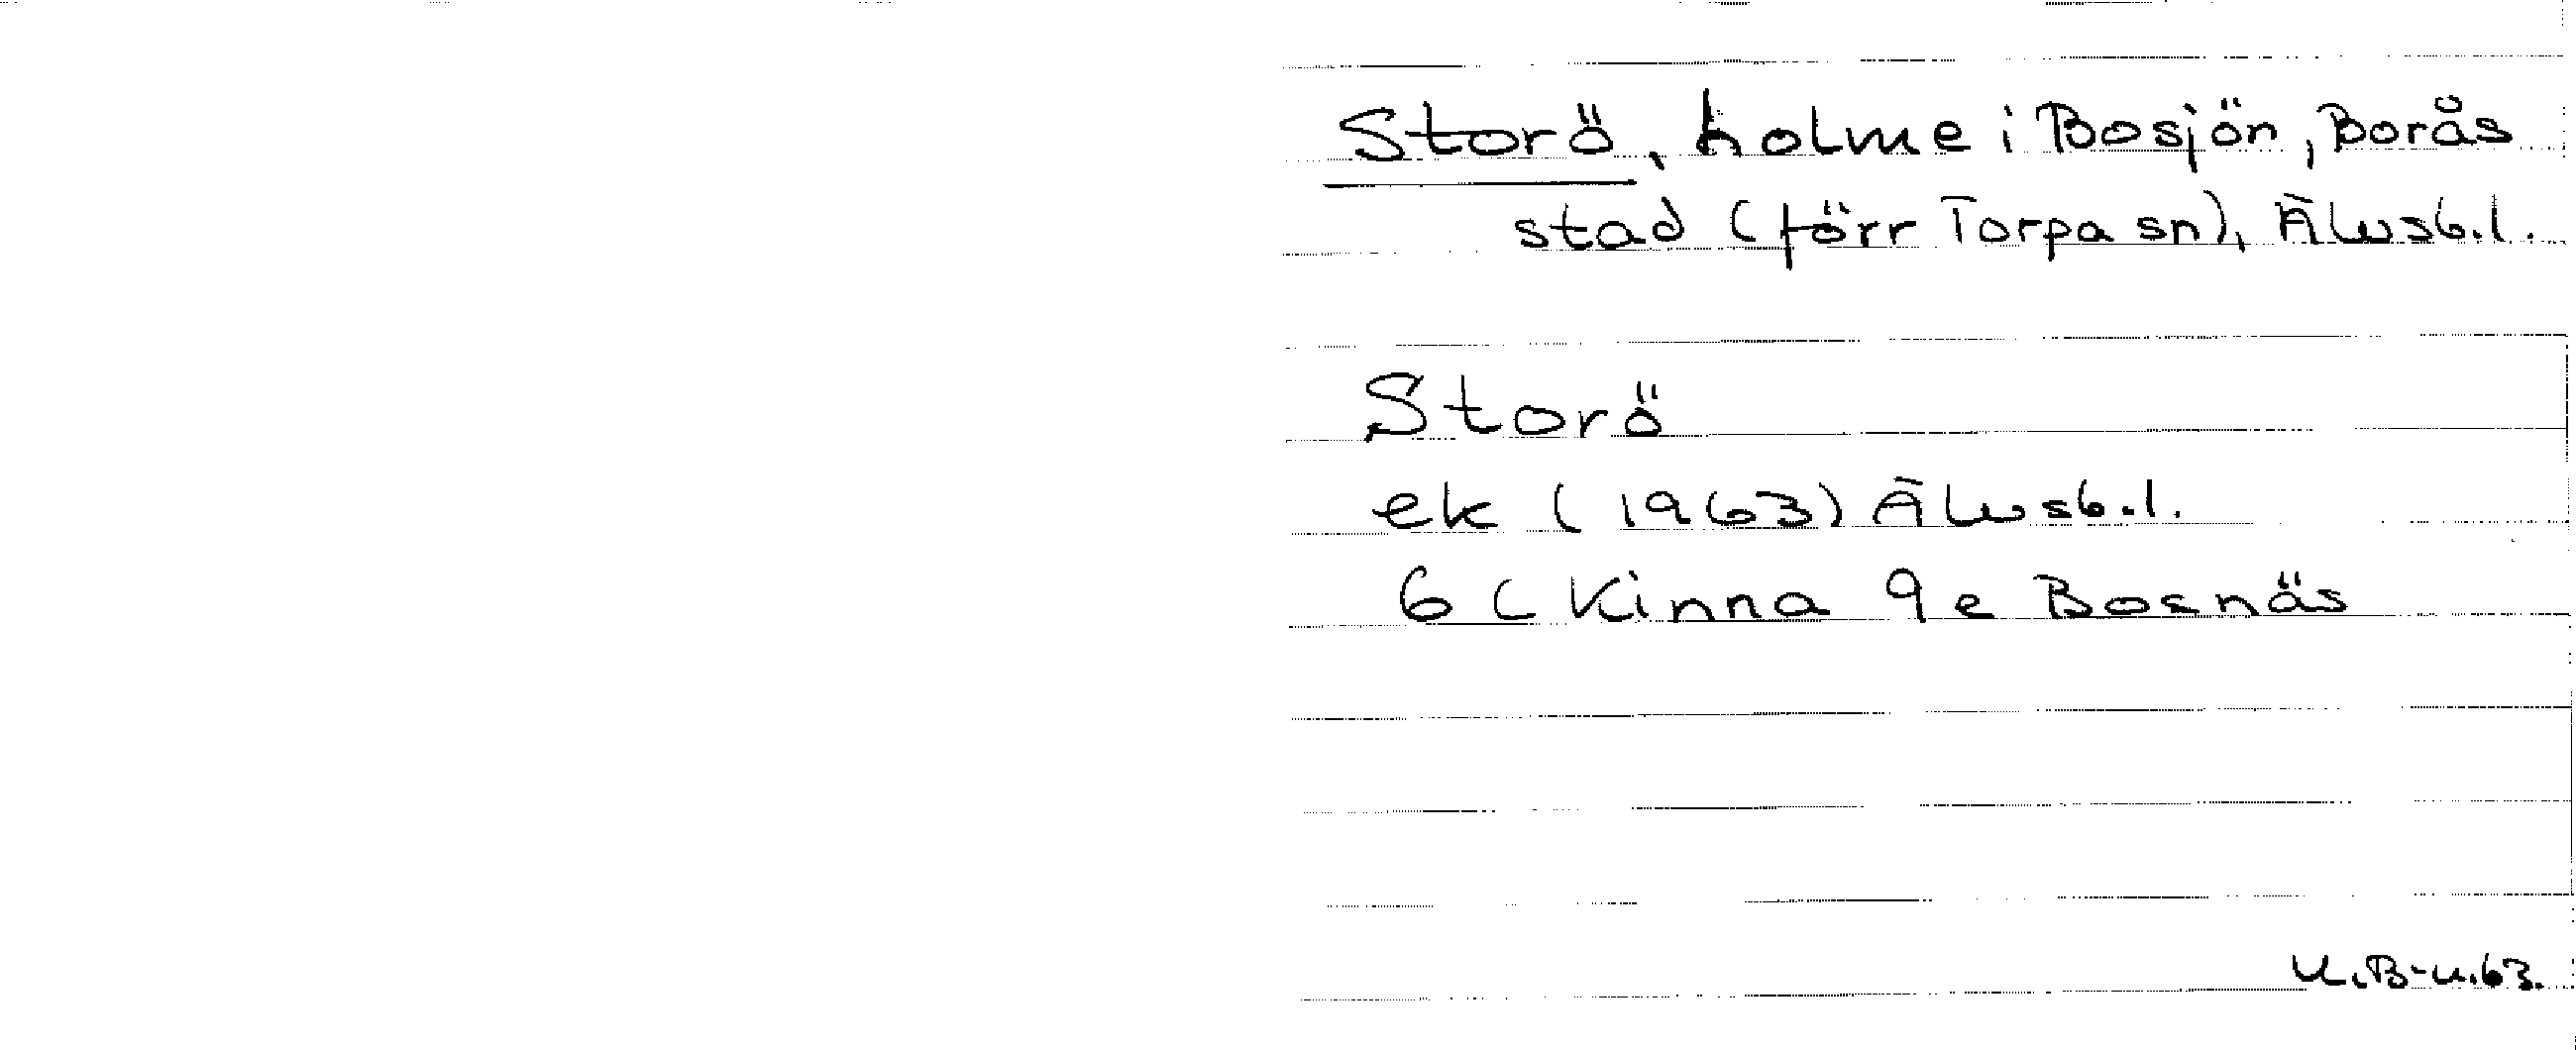 Storö, holme i Bosjön, Borås
stad (förr Torpa sn), Älvsb.l.
Storö
ek (1963) Älvsb.l.
6 C Kinna 9e Bosnäs
U.B-n.63.